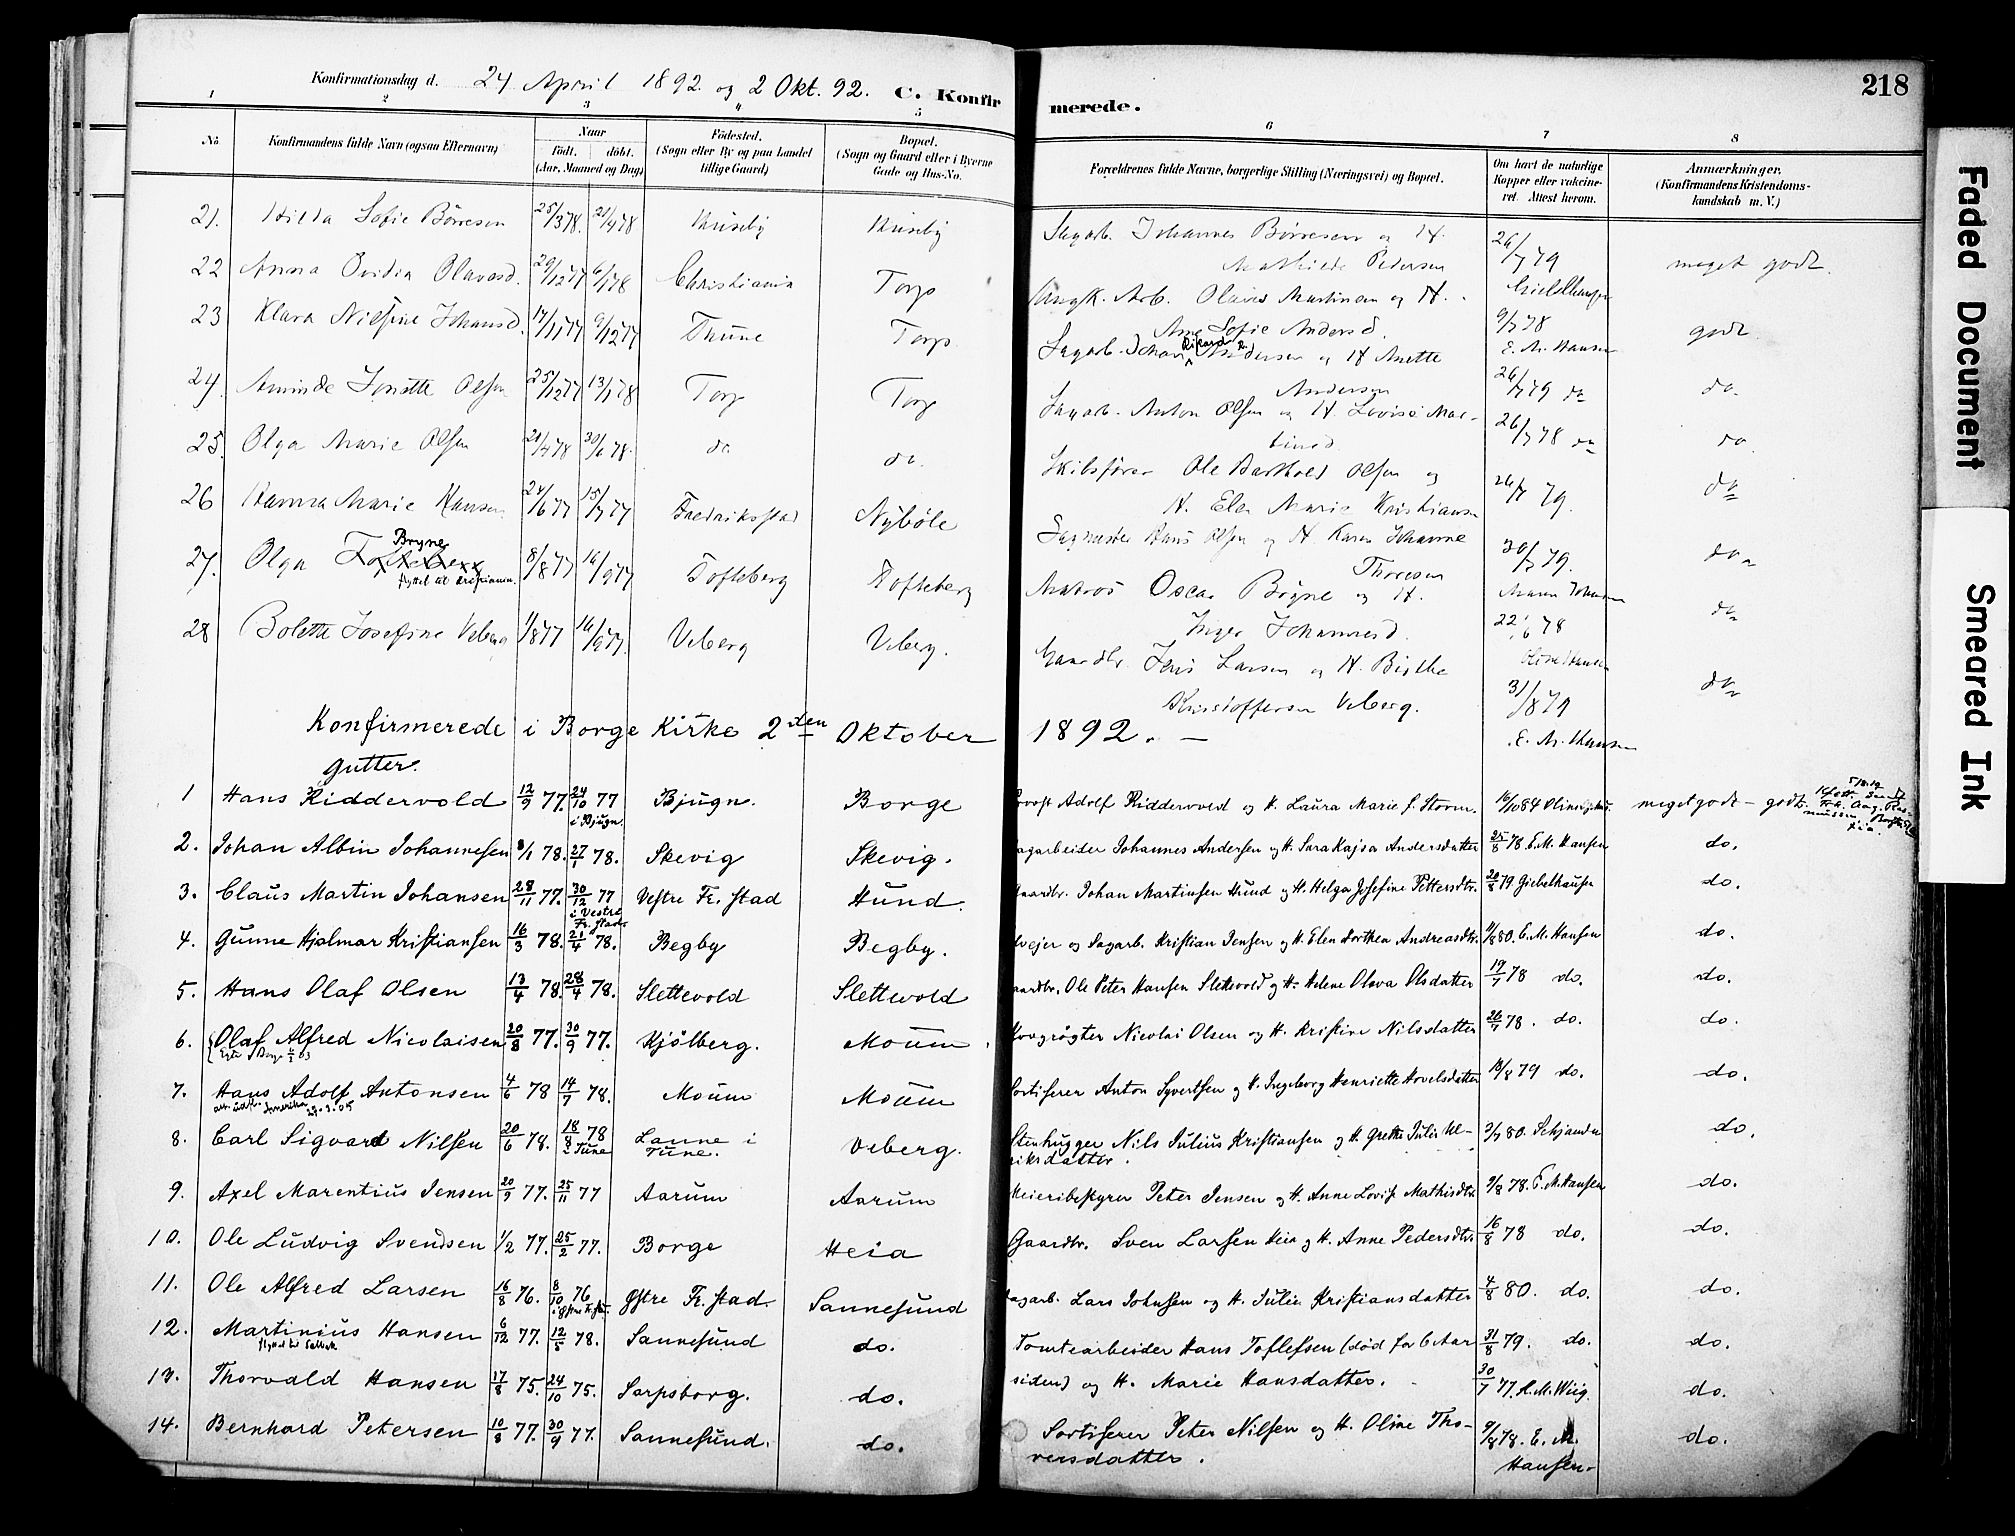 218
Konfirmationsdag d. 24 April 1892 og 2 Okt. 92. C. Konfirmerede.
1 2 3 4 5 6 7 8
No. Konfirmandens fulde Navn (ogsaa Efternavn) Naar födt. döbt. (Aar, Maaned og Dag) Födested. (Sogn eller By og paa Landet tillige Gaard) Bopæl. (Sogn og Gaard eller i Byerne Gade og Hus-No. Forældrenes fulde Navne, borgerlige Stilling (Næringsvei) og Bopæl. Om havt de naturlige Kopper eller vakcineret. Attest herom. Anmærkninger. (Konfirmandens Kristendomskundskab m. V.)
21. Hilda Sofie Börresen 25/3 78. Huseby Huseby Sagarb. Johannes Börresen og H. Mathilde Pedersen 26/7 79 meget godt.
22 Anna Ovidia Olavesd. 29/12 77 6/1 78 Christiania Torp Olaves Martinsen og H. Ane Sofie Andersd. 9/7 78 E. M. Hansen godt
23 Klara Nilsine Johansd. 17/11 77 9/12 77 Thune Torp Sagarb. Johan Rikard Andersen og H Anette Andersen 26/7 79 do do.
24. Aminda Jonette Olsen 25/12 77 13/1 78 Torp Torp Sagarb. Anton Olsen og H. Lovise Martinsd. 26/7 78 do do
25. Olga Marie Olsen 30/6 78. do do. Skibsförer Ole Barthold Olsen og H. Elen Marie Kristiansen 26/7 79. do
26 Hanna Marie Hansen 24/6 77 15/7 77 Fredriksstad Nÿböle Sagmester Hans Olsen og H Karen Johanne Thoresen 30/7 79. do
27. Olga Tofteberg Bryne 8/8 77 16/9 77 Tofteberg Tofteberg Matros Oscar Bryne og H. Inger Johannesd. 22/6 78 do
28 Bolette Josefine Viberg 1/8 77 16/9 77. Viberg Viberg. Gaardbr. Jens Larsen og H. Birthe Kristoffersen Viberg. 31/8 79 E. M. Hansen do
Konfirmerede i Borge Kirke 2den Oktober 1892. —
gutter.
1 Hans Riddervold 12/9 77. 24/10 77 i Bjugn. Bjugn. Borge Provst Adolf Riddervold og H. Laura Marie f. Storm. 16/10 84 meget godt - godt.
2. Johan Albin Johannesen 8/1 78. 27/1 78. Skevig Skevig. Sagarbeider Johannes Andersen og H. Sara Kajsa Andersdatter 25/8 78 E. M. Hansen do.
3. Claus Martin Johansen 28/11 77. 30/12 77 i Vestre Fr. stad. Vestre Fr. stad Hund. Gaardbr. Johan Martinsen Hund og H. Helga Josefine Pettersdtr. 20/8 79 Giebelhausen do.
4. Gunne Hjalmar Kristiansen 16/3 78. 21/4 78. Begby Begby. Selvejer og Sagarb. Kristian Jensen og H. Elen Dorthea Andreasdtr. E. M. Hansen do.
5. Hans Olaf Olsen 13/4 78. 28/4 78. Slettevold Slettevold Gaardbr. Ole Peter Hansen Slettevold og H. Helene Olava Olsdatter 19/7 78 do. do.
6. Olaf Alfred Nicolaisen 20/8 77. 30/9 77. Kjölberg. Moum Kovrögter Nicolai Olsen og H. Kristine Nilsdatter 26/7 78. do. do.
7. Hans Adolf Antonsen 4/6 78 14/7 78. Moum Moum Sortiserer Anton Syvertsen og H. Ingeborg Henriette Hovelsdatter 19/8 79 do. do.
8. Carl Sigvard Nilsen 20/6 78. 18/8 78 i Tune Lanne i Tune. Viberg. Stenhugger Nils Julius Kristiansen og H. Grethe Julie Ulriksdatter. 2/7 80. do.
9. Axel Marentius Jensen 20/9 77. 25/11 77 Aarum Aarum Meieribestyrer Peter Jensen og H. Anne Lovise Mathisdtr. 9/8 78. E. M. Hansen do.
10. Ole Ludvig Svendsen 1/2 77. 25/2 77. Borge Heia Gaardbr. Sven Larsen Heia og H. Anne Pedersdtr. 16/8 78 do. do.
11. Ole Alfred Larsen 16/8 76. 8/10 76 Østre Fr. stad. Sannesund Sagarb. Lars Johnsen og H. Julie Kristiansdatter 4/8 80. do. do.
12. Martinius Hansen 6/12 77. 12/5 78. Sannesund do. Tomtearbeider Hans Toflefsen (död for 6 Aar siden) og H. Marie Hansdatter. 31/8 79. do. do.
13. Thorvald Hansen 17/8 75. 24/10 75. Sarpsborg. do. 30/7 77. H. M. Wiig. do.
14. Bernhard Petersen 10/8 77. 30/9 77. Sannesund. do. Sortiserer Peter Nilsen og H. Oline Thoversdatter. 9/8 78. E. M. Hansen. do.
Faded Document
Smeared Ink